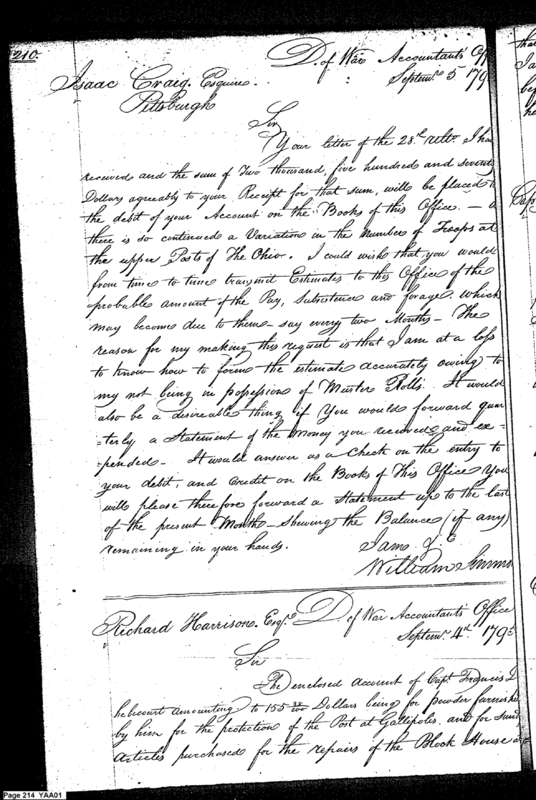 210.
D. of War Accountants Off
Septemr. 5 179
Isaac Craig. Esquire.
Pittsburgh
Sir
Your letter of the 28th ulto. I ha
received and the sum of Two thousand, five hundred and seventy
Dollars agreeably to your Receipt for that sum, will be placed to
the debit of your Account on the Books of this Office. —
there is so continued a Variation in the Number of Troops at
the upper Posts of The Ohio. I could wish that you would
from time to time transmit Estimates to this Office of the
probable amount of the Pay, Subsistence and forage which
may become due to them – say every two Months – The
reason for my making this request is that I am at a loss
to know how to form the estimate accurately owing to
my not being in possession of Muster Rolls. It would
also be a desireable thing if You would forward quar
-terly a Statement of the Money you recieved and ex-
-pended – It would answer as a Check on the entry to
your debit, and Credit on the Books of This Office You
will please therefore forward a Statement up to the last
of the present Month – shewing the Balance (if any)
remaining in your hands.
I am &c
William Simmons
Richard Harrison. Esqr. D of War Accountants Office
Septemr. 4th 1795
Sir
The enclosed Account of Capt Francis D
hebecourt amounting to 155 Dollars being for powder furnishe
by him for the protection of the Post at Gallipolis. and for sund
Articles purchased for the repairs of the Block House a
tha
I a
bef
he
Cap
Page 214 YAA01